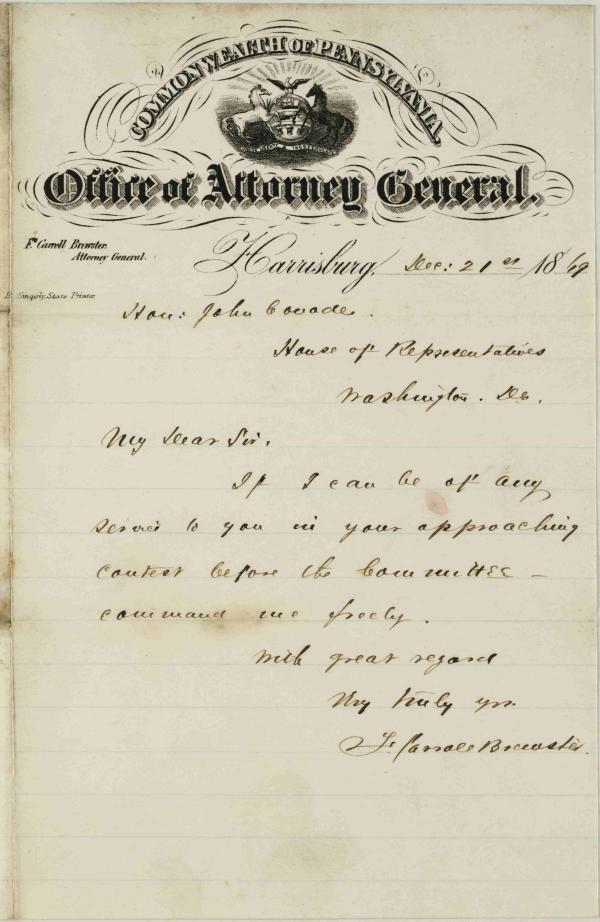 COMMONWEALTH OF PENNSYLVANIA.
Office of Attorney General.
Fk Carroll Brewster.
Attorney General.
Harrisburg, Dec: 21st 1869
B. Singerly, State Printer.
Hon: John Covode.
House of Representatives
Washington. Dc.
My Dear Sir,
If I can be of any
service to you in your approaching
contest before the Committee –
command me freely.
With great regard
Vry truly yrs.
F. Carroll Brewster.